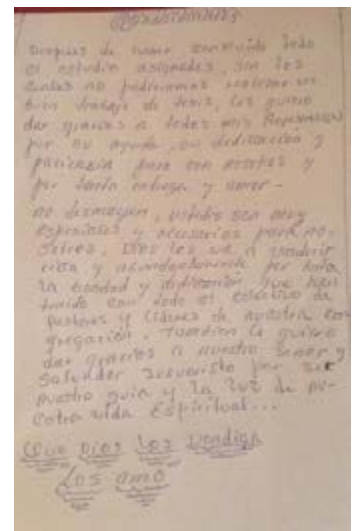 Agradecimientos
Despues de haber concluido todo
el estudio asignados, sin los
cuales no podriamos realizar un
buen trabajo de tesis, les quiero
dar gracias a todos mis
por su ayuda, su dedicación y
paciencia para con nosotros y
por tanta entrega y amor.
no desmayen, ustedes son muy
especiales y necesarios para no-
sotros, Dios les va a
rica y abundantemente por toda
la bondad y dedicación que han
tenido con todo el colectivo de
Pastores y Líderes de nuestra con
gregación. También le quiero
dar gracias a nuestro Señor y
Salvador Jesucristo por ser
nuestro guía y la luz de nu
estra vida Espiritual...
Que Dios los bendiga
Los amo